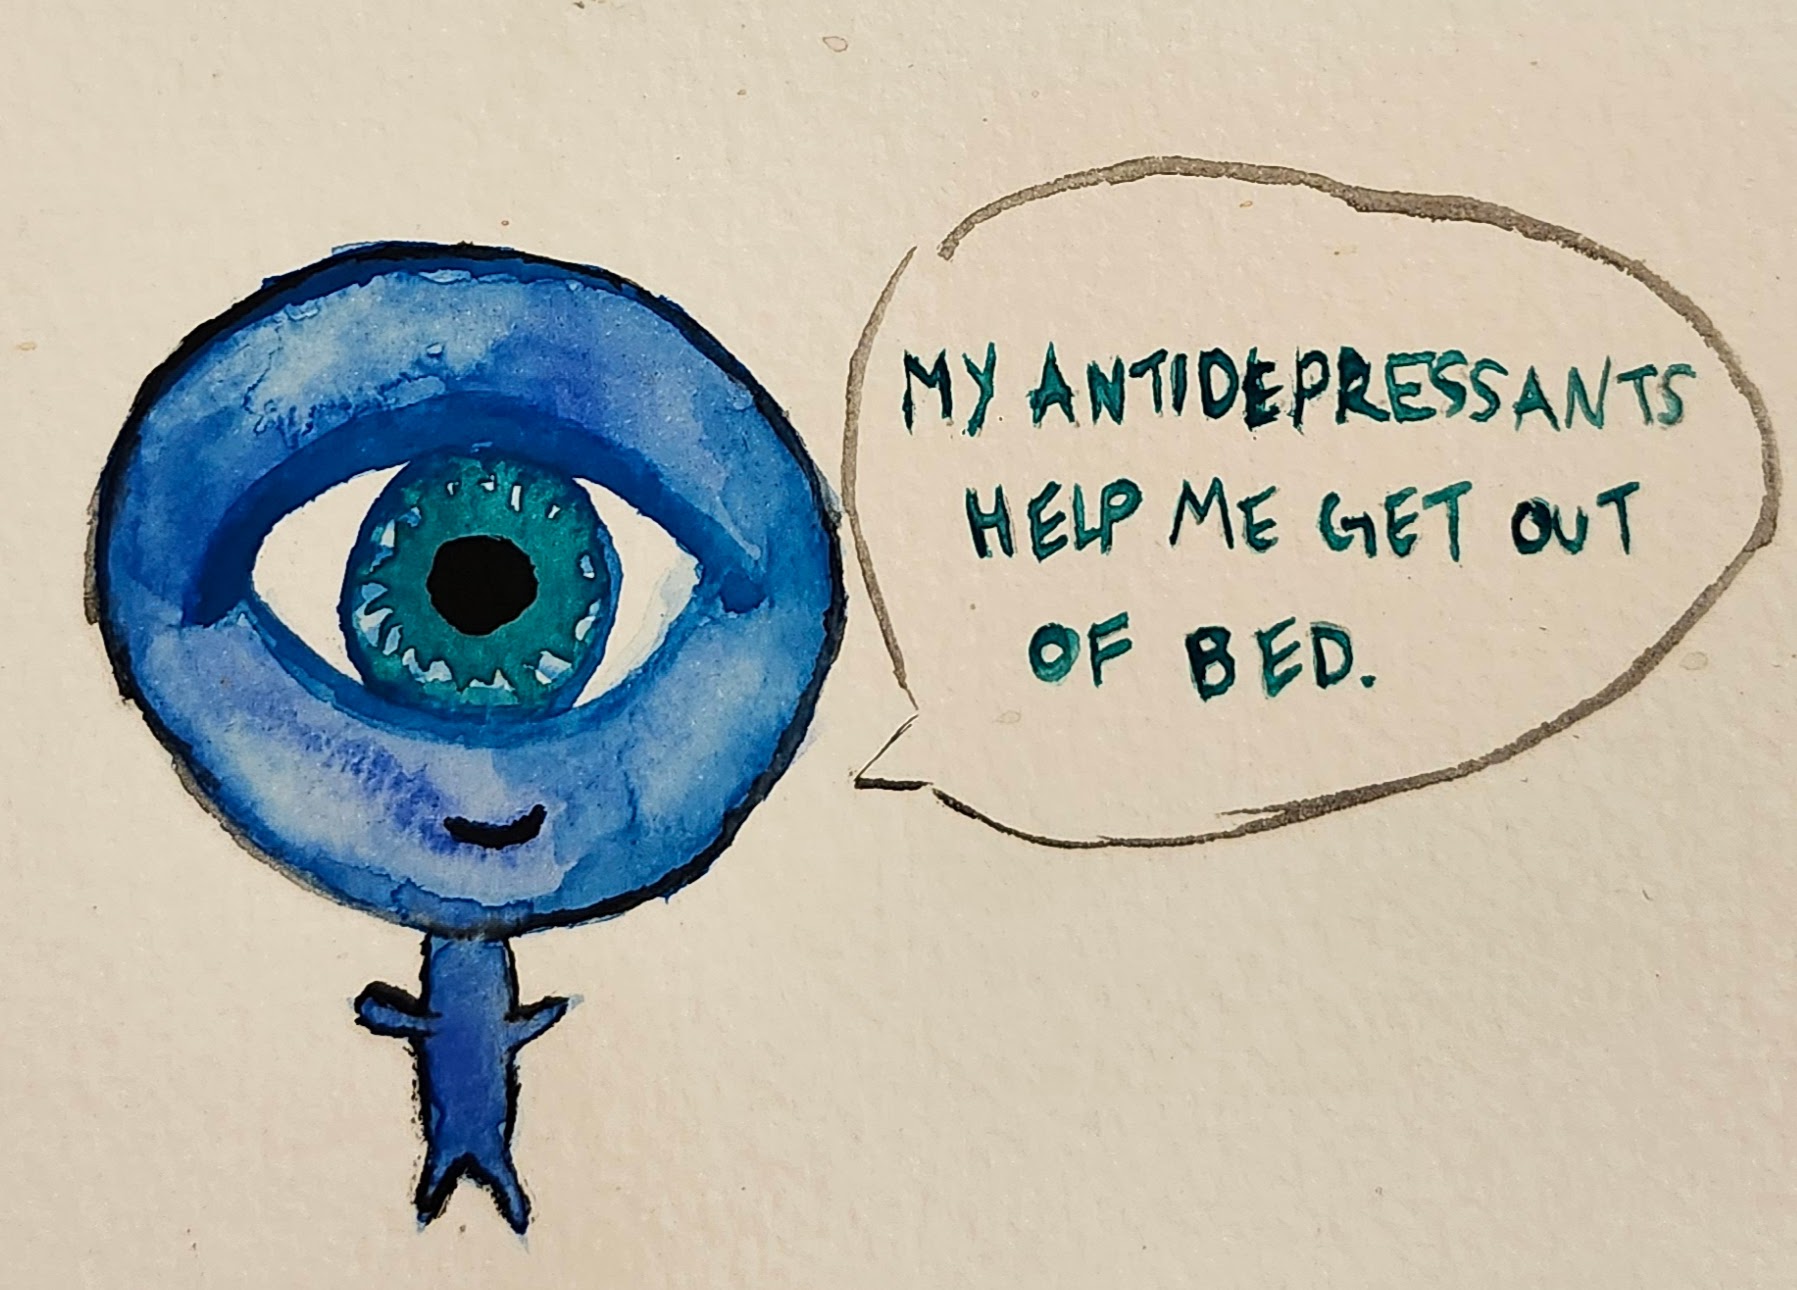 MY ANTIDEPRESSANTS
HELP ME GET OUT
OF BED.